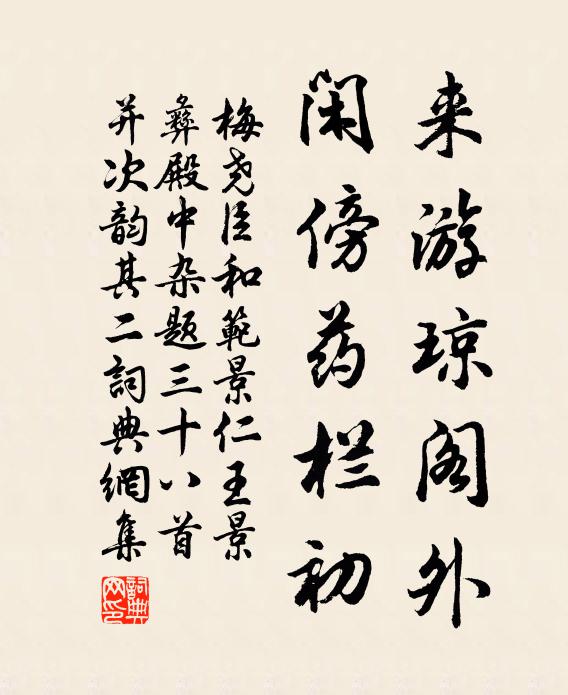 来游琼阁外
闲傍药栏初
梅尧臣和範景仁王景
彝殿中杂题三十八首
并次韵其二詞典網集
詞典
网印